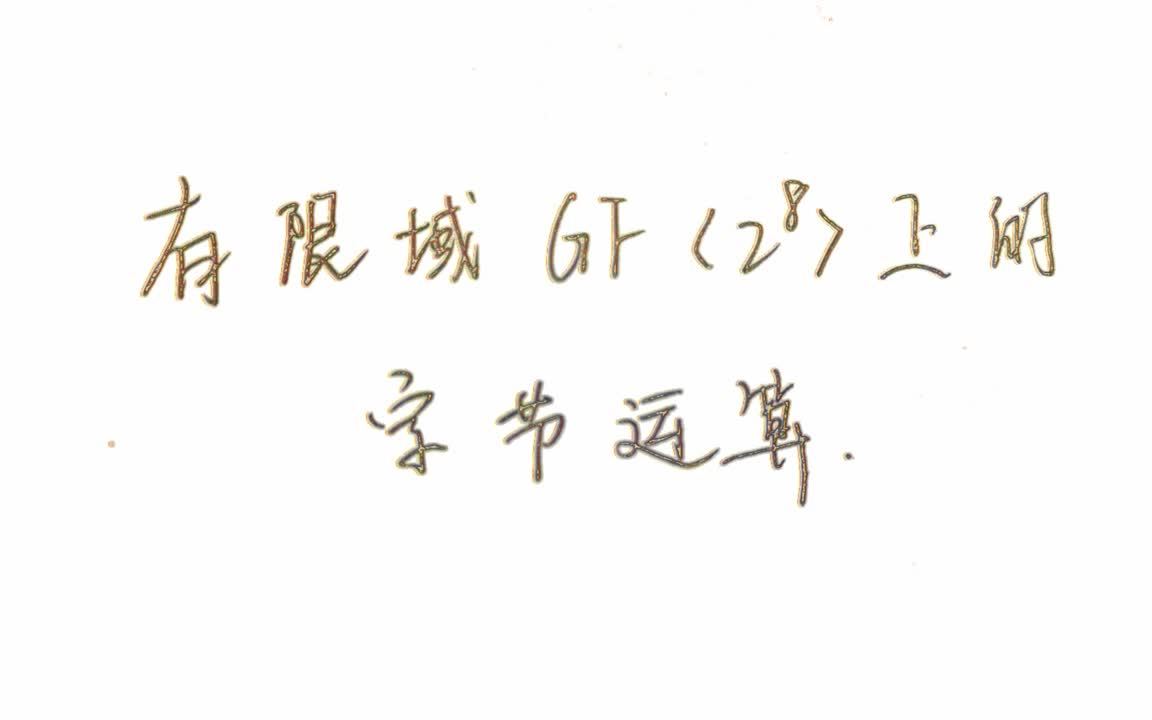 有限域 GF(2⁸)上的
字节运算.